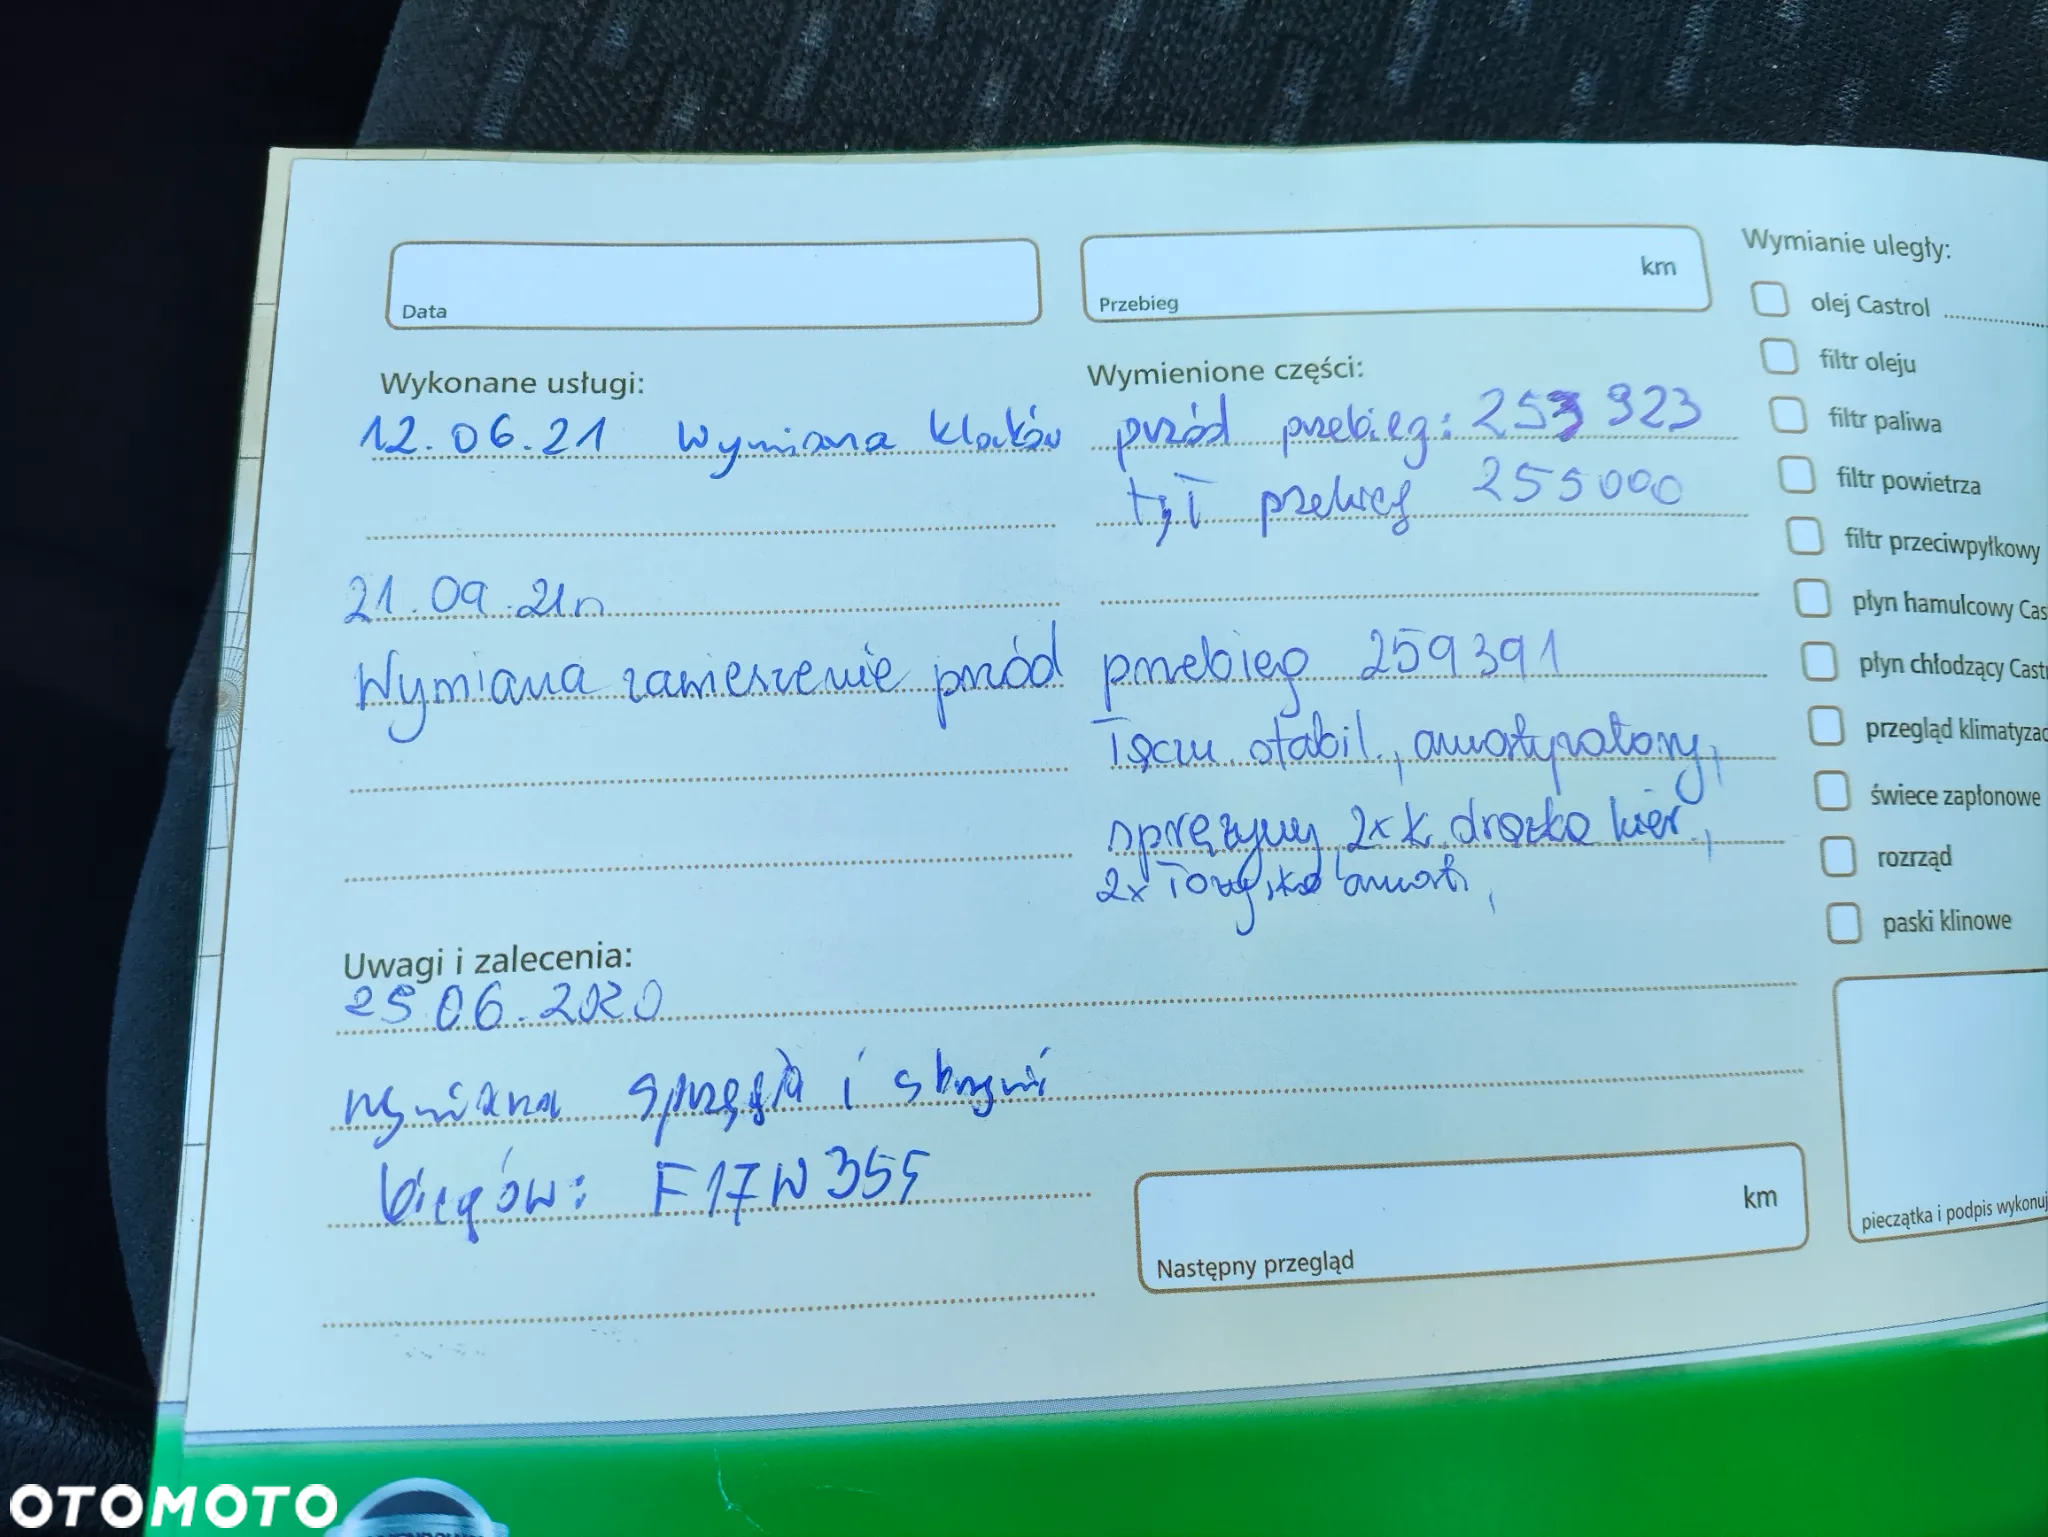 Data
Przebieg
km
Wykonane usługi:
12.06.21 Wymiana klocków
21.09.21r
Wymiana zawieszenie przód
Wymienione części:
przód przebieg: 253 923
tył przebieg 255000
przebieg 259391
Łącz. stabil., amortyzatory,
sprężyny, 2x k. drążka kier.,
2x łożysko amort,
Uwagi i zalecenia:
25.06.2020
wymiana sprzęgła i skrzyni
biegów: F17W355
Następny przegląd
km
Wymianie uległy:
olej Castrol
filtr oleju
filtr paliwa
filtr powietrza
filtr przeciwpyłkowy
płyn hamulcowy Cas
płyn chłodzący Cast
przegląd klimatyzac
świece zapłonowe
rozrząd
paski klinowe
pieczątka i podpis wykonuj
OTOMOTO